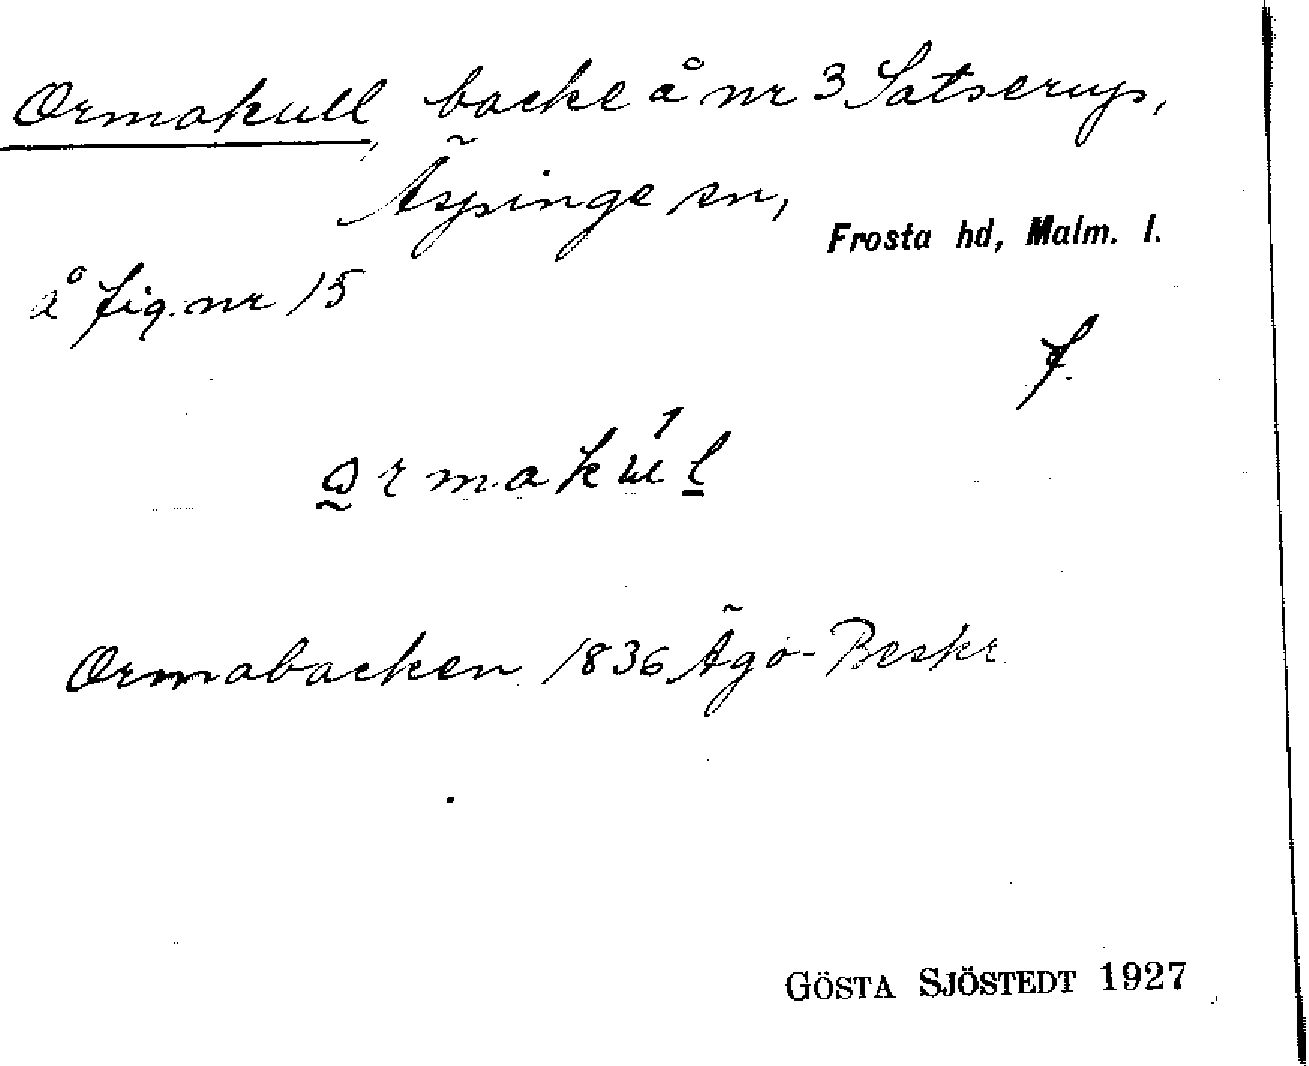 Ormakull, backe å nr 3 Satserup,
Äspinge sn,
Frosta hd, Malm. l.
å fig. nr 15
f.
ormakul
Ormabacken 1836 Ägo-Beskr.
GÖSTA SJÖSTEDT 1927